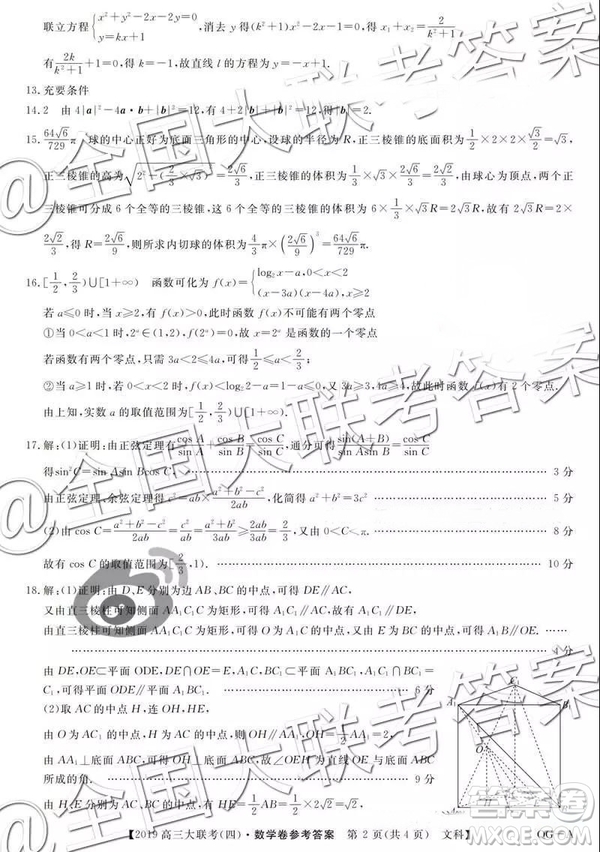 联立方程{x²+y²-2x-2y=0 y=kx+1,消去y得
有2k/(k²+1)+1=0,得k=-1,故直线l的方程为y=-x+1.
13.充要条件
14.2 由4|a|²-4a·b+|b|²=12,有4+2|b|+|b|²=12,得|b|=2.
15.64√6/729π 球的中心正好为底面三角形的中心,设球的半径为R,正三棱锥的底面积为1/2×2×2×√3/2=√3,
由球心为顶点,两个正
三棱锥可分成6个全等的三棱锥,故这两个正三棱锥的体积为6×1/3×√3R=2√3R,故有2√3R=
2√2/3,得R=√6/9,则所求内切球的体积为
16.[1/2,2/3)∪[1+∞) 函数可化为f(x)={log₂x-a,0<x<2 (x-3a)(x-4a),x≥2
若a≤0时,当x≥2,有f(x)>0,此时函数f(x)不可能有两个零点
①当0<a<1时,2ᵃ∈(1,2),f(2ᵃ)=0,故2ᵃ是函数的一个零点
若函数有两个零点,只需3a<2≤4a,可得1/2≤a<2/3
②当a≥1时,若0<x<2时,f(x)<log₂2-a=1-a≤0,
由上知,实数a的取值范围为[1/2,2/3)∪[1,+∞).
17.解:(1)证明:由正弦定理有cos A/sin A+cos B/sin B=cos C/sin C,通分可得sin(A+B)/(sin Asin B)=cos C/sin C
得sin²C=sin Asin Bcos C, 3分
由正弦定理、余弦定理有c²=ab×(a²+b²-c²)/2ab,化简得a²+b²=3c² 5分
(2)由cos C=(a²+b²-c²)/2ab= ≥2ab/3ab=2/3,又由0<C<π. 8分
故有cos C的取值范围为[2/3,1). 10分
18.解:(1)证明:由D、E分别为边AB、BC的中点,可得DE∥AC,
又由直三棱柱可知侧面AA₁C₁C为矩形,可得A₁C₁∥AC,故有A₁C₁∥DE,
又由直三棱柱可知侧面AA₁C₁C为矩形,可得O为A₁C的中点,又由E为BC的中点,可得A₁B∥OE.
4分
由DE,OE⊂平面ODE,DE∩OE=E,A₁B,A₁C₁⊂平面A₁BC₁,A₁B∩A₁C₁=
C₁,可得平面ODE∥平面A₁BC₁. 6分
(2)取AC的中点H,连OH,HE,
由O为A₁C的中点,H为AC的中点,则OH∥AA₁,OH=1/2AA₁=
由AA₁⊥底面ABC,可得OH⊥底面ABC,故∠OEH为直线OE与底面ABC
所成的角. 9分
由H、E分别为AC、BC的中点,可得HE=1/2AB=
【2019高三大联考(四)·数学卷参考答案 第2页(共4页) 文科】
@全国大联考答案
@全国大联考答案